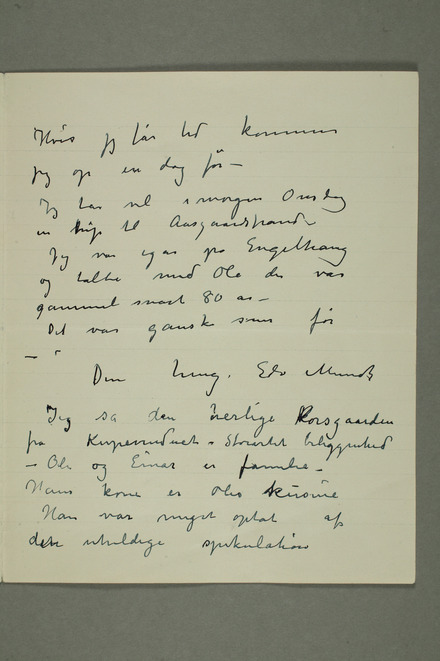 Hvis jeg får tid kommer
jeg op en dag før –
Jeg tar vel i morgen Onsdag
en trip til Aasgaardstrand
Jeg var igår på Engelhaug
og talte med Ole der var
gammel snart 80 år –
Det var ganske som før
–
Din heng. Edv Munch
Jeg så den herlige Korsgaarden
fra Storartet beliggenhed
– Ole og Einar er familie –
Hans kone er Oles kusine
Han var meget optat af
den uheldige spekulation